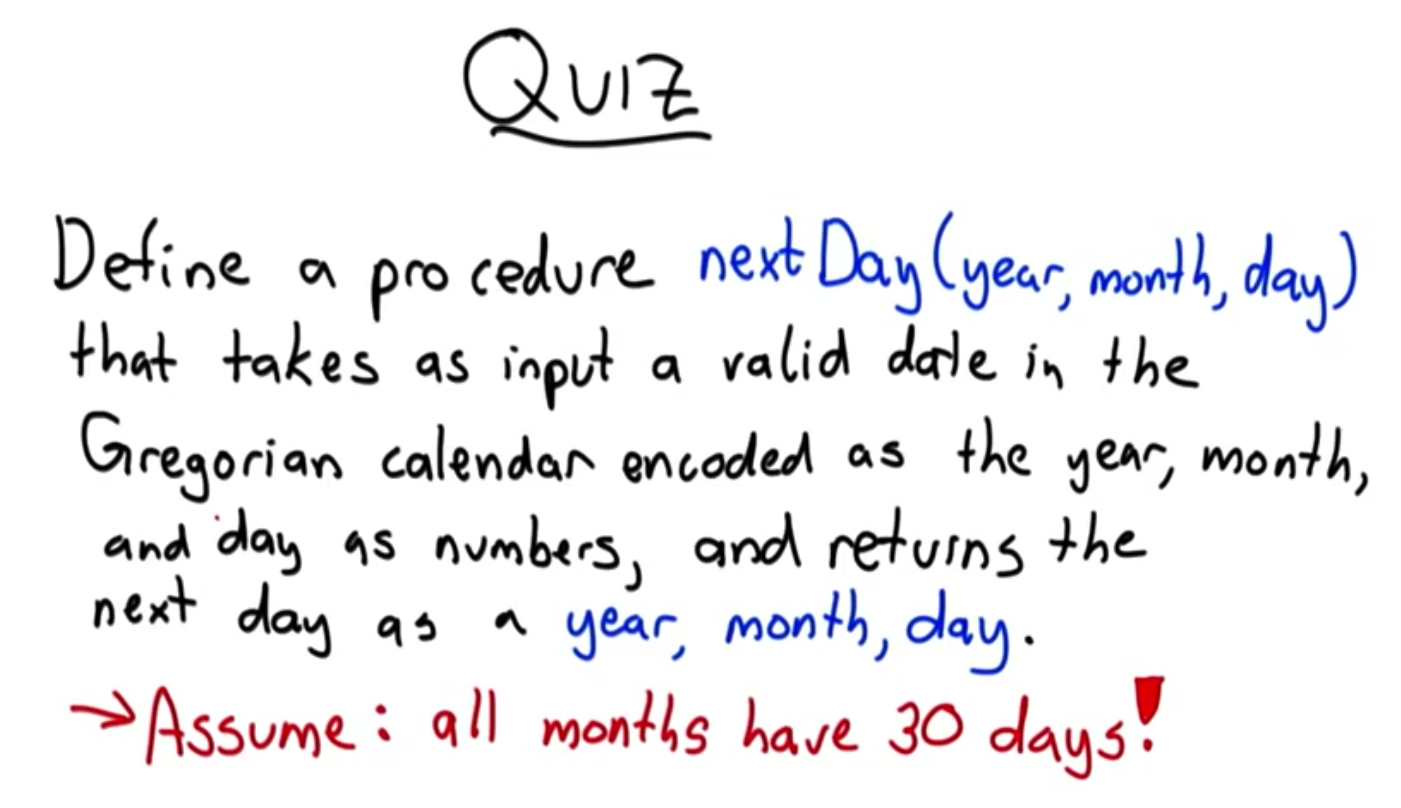 QUIZ
Define a procedure nextDay(year, month, day)
that takes as input a valid date in the
Gregorian calendar encoded as the year, month,
and day as numbers, and returns the
next day as a year, month, day.
→Assume: all months have 30 days!